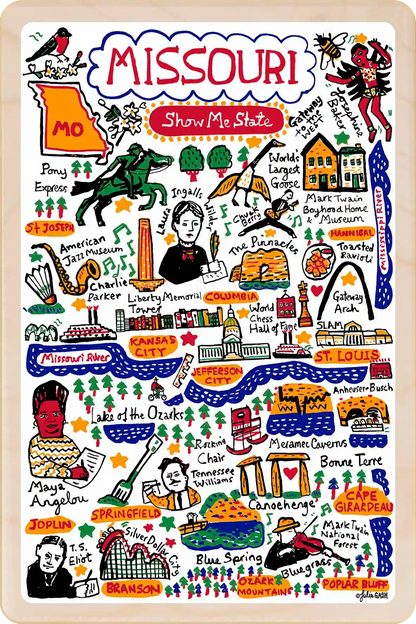 MISSOURI
Show Me State
MO
Gateway
to the
WEST
Josephine
Baker
Pony
Express
St JOSEPH
Laura Ingalls Wilder
Chuck
Berry
Worlds
Largest
Goose
Mark Twain
Boyhood Home
& Museum
HANNIBAL
Mississippi River
American
Jazz Museum
Charlie
Parker
Liberty Memorial
Tower
The Pinnacles
COLUMBIA
Toasted
Ravioli
Gateway
Arch
World
Chess
Hall of Fame
SLAM
KANSAS
CITY
ST. LOUIS
Missouri River
JEFFERSON
CITY
Anheuser-Busch
Lake of the Ozarks
Rocking
Chair
Meramec Caverns
Bonne Terre
Maya
Angelou
Tennessee
Williams
Canoehenge
CAPE
GIRARDEAU
JOPLIN
SPRINGFIELD
T.S.
Eliot
Silver Dollar City
BRANSON
Blue Spring
OZARK
MOUNTAINS
Bluegrass
Mark Twain
National
Forest
POPLAR BLUFF
©Julia GASH